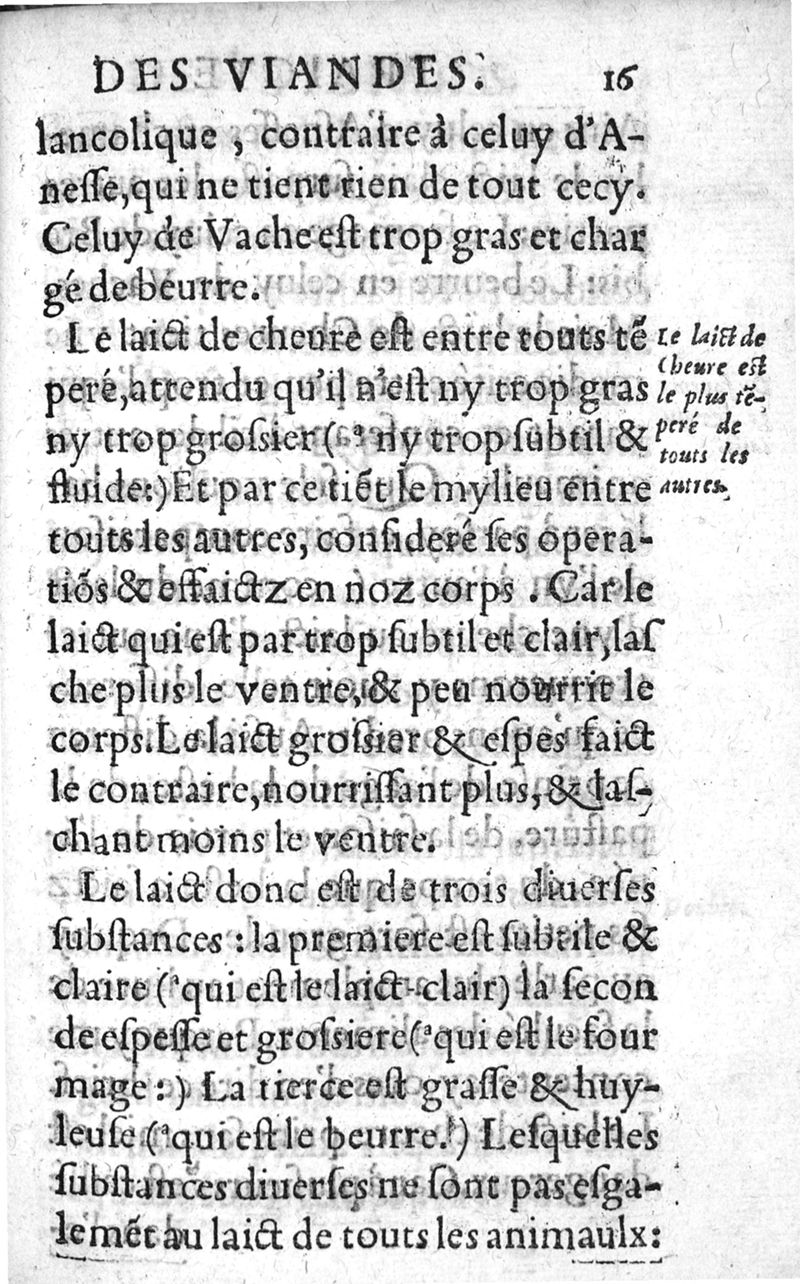 DES VIANDES. 16
lancolique, contraire à celuy d'A-
nesse, qui ne tient rien de tout cecy.
Celuy de Vache est trop gras et char
gé de beurre.
Le laict de cheure est entre touts tẽ
peré, attendu qu'il n'est ny trop gras
ny trop grossier (ª ny trop subtil &
fluide:) Et par ce tiẽt le mylieu entre
touts les autres, consideré ses opera-
tiõs & effaictz en noz corps. Car le
laict qui est par trop subtil et clair, las
che plus le ventre, & peu nourrit le
corps. Le laict grossier & espes faict
le contraire, nourrissant plus, & las-
chant moins le ventre.
Le laict donc est de trois diuerses
substances : la premiere est subtile &
claire (ª qui est le laict-clair) la secon
de espesse et grossiere (ª qui est le four
mage :) La tierce est grasse & huy-
leuse (ª qui est le beurre.) Lesquelles
substances diuerses ne sont pas esga-
lemẽt au laict de touts les animaulx:
Le laict de
cheure est
le plus tẽ-
peré de
touts les
autres.